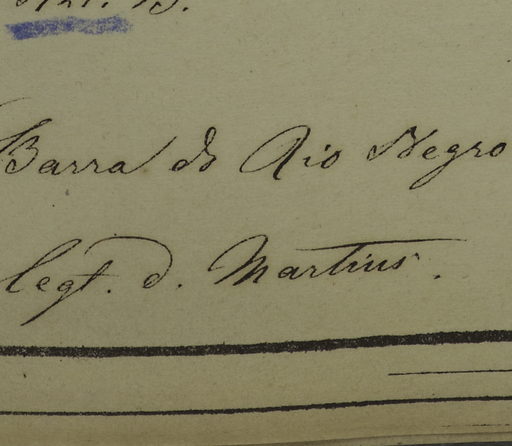 Barra do Rio Negro
legt. d. Martius.